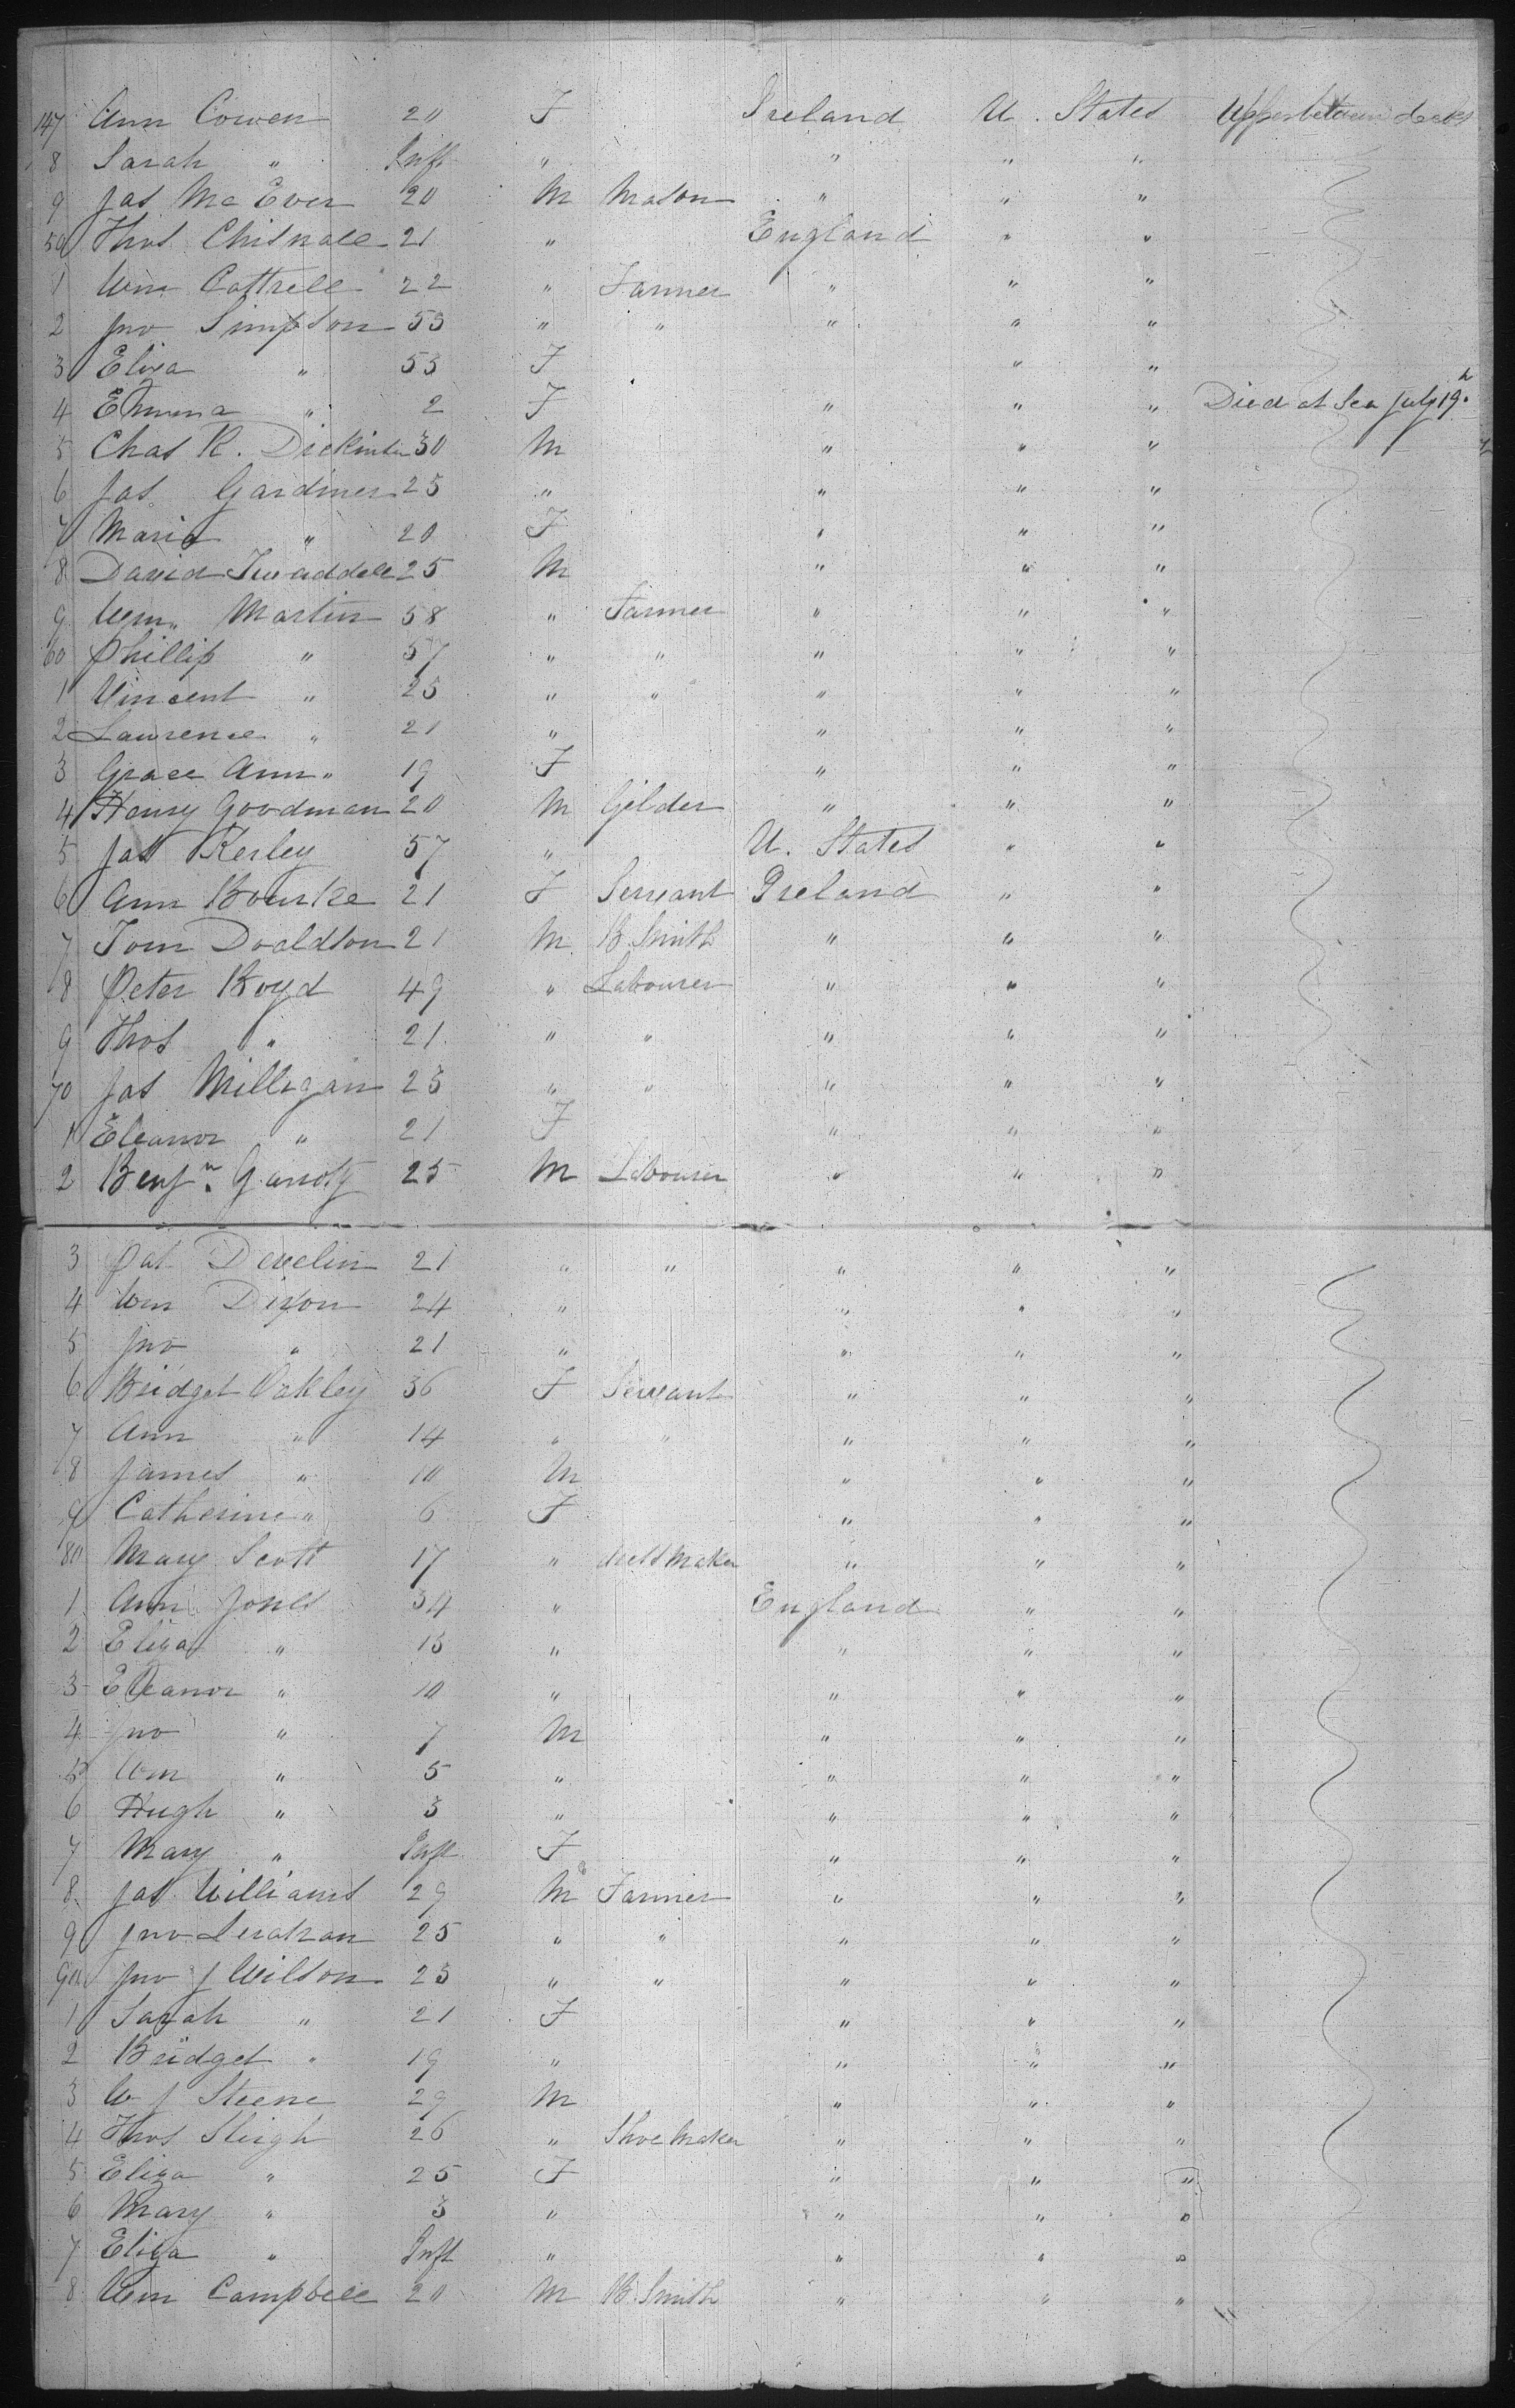 147 Ann Cowen 20 F Ireland U. States Upper between decks
8 Sarah " Inft " " " "
9 Jas Mc Ever 20 M Mason " " "
50 Thos Chisnall 21 " England " "
1 Wm Cottrell 22 " Farmer " " "
2 Jno Simpson 53 " " " " "
3 Eliza " 53 F " "
4 Emma " 2 F " " " Died at Sea July 19th
5 Chas R. Dickinson 30 M " " "
6 Jas Gardiner 25 " " " "
7 Maria " 20 F " " "
8 David Twaddell 25 M " " "
9 Wm Martin 58 " Farmer " " "
60 Phillip " 57 " " " " "
1 Vincent " 25 " " " " "
2 Lawrence " 21 " " " "
3 Grace Ann " 19 F " " "
4 Henry Goodman 20 M Gilder " " "
5 Jas Kerley 57 " U. States " "
6 Ann Bourke 21 F Servant Ireland " "
7 Tom Doaldson 21 M B Smith " " "
8 Peter Boyd 49 " Labourer " " "
9 Thos " 21 " " " " "
70 Jas Milligan 23 " " " " "
1 Eleanor " 21 F " " "
2 Benjn 25 M Labourer " " "
3 Pat Develin 21 " " " " "
4 Wm Dixon 24 " " " "
5 Jno " 21 " " " "
6 Bridget Oakley 36 F Servant " " "
7 Ann " 14 " " " " "
8 James " 10 M " " "
9 Catherine " 6 F " " "
80 Mary Scott 17 " dress maker " " "
1 Ann Jones 34 " England " "
2 Eliza " 13 " " " "
3 Eleanor " 10 " " " "
4 Jno " 7 M " " "
5 Wm " 5 " " " "
6 Hugh " 3 " " " "
7 Mary " Inft F " " "
8 Jas Williams 29 M Farmer " " "
9 Jno 25 " " " " "
90 Jno J Wilson 23 " " " " "
1 Sarah " 21 F " " "
2 Bridget " 19 " " " "
3 W J Steene 29 M " " "
4 Thos Sleigh 26 " Shoe Maker " " "
5 Eliza " 25 F " " "
6 Mary " 3 " " " "
7 Eliza " Inft " " " "
8 Wm Campbell 20 M B. Smith " " "